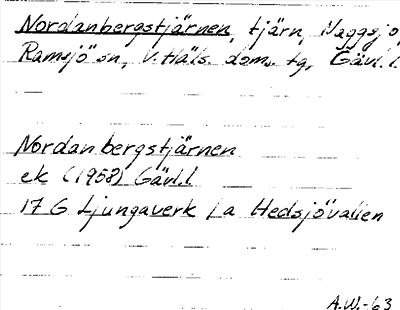 Nordanbergstjärnen, tjärn, Naggsjö,
Ramsjö sn, V. Häls. doms. tg, Gävl. l.
Nordanbergstjärnen
ek (1958) Gävl. l
17 G Ljungaverk / a Hedsjövallen
A.W.-63